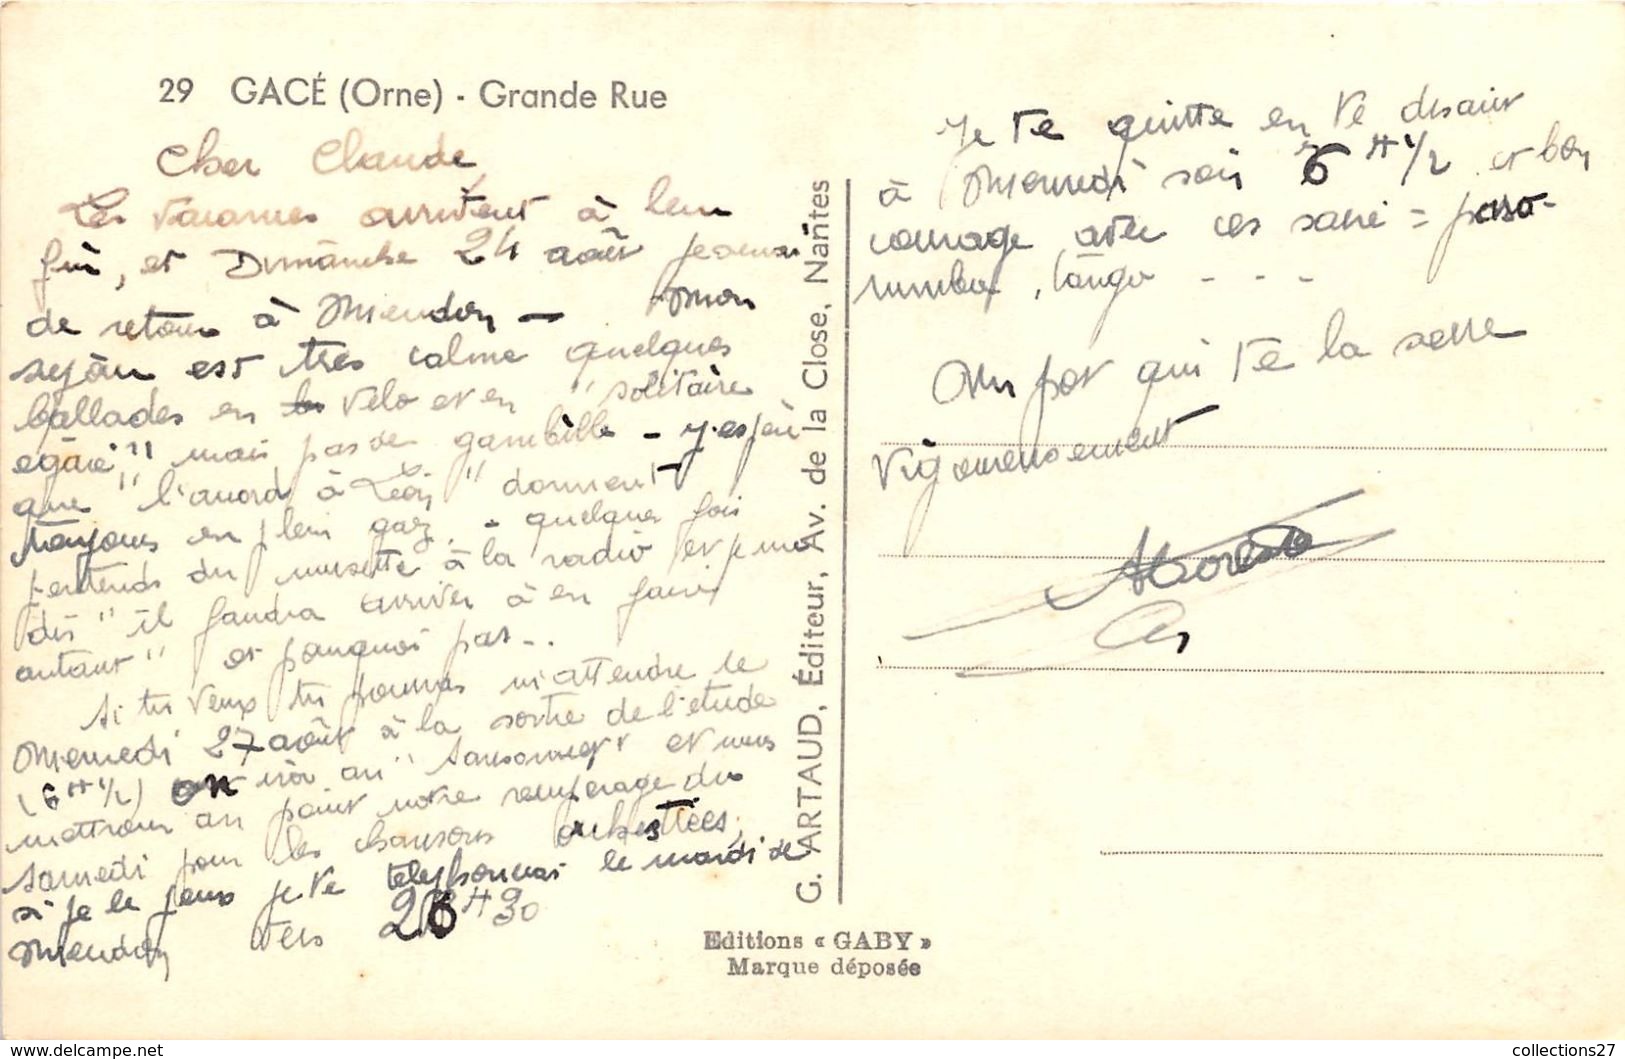 29 GACÉ (Orne) - Grande Rue
Cher Claude,
Les vacances arrivent à leur
fin, et Dimanche 24 août je serai
de retour à Meudon — Mon
séjour est très calme quelques
ballades en vélo et en "solitaire
égaré" mais pas de gambille - J'espère
que "l'accord à Léon" donnent
toujours en plein gaz. - quelques fois
j'entends du musette à la radio et je me
dis "il faudra arriver à en faire
autant" et pourquoi pas...
Si tu veux tu pourras m'attendre le
Mercredi 27 août à la sortie de l'étude
(6 H 1/2) on ira au "Sansonnet" et nous
mettrons au point notre du
samedi pour les chansons
si je le peux je te téléphonerai le mardi de
Meudon vers 20 H 30
Je te quitte en te disant
à Mercredi soir 6 H 1/2 et bon
courage avec ces sacré = paso-
rumba, tango - - -
Un pot qui te la serre
vigoureusement
G. ARTAUD, Éditeur, Av. de la Close, Nantes
Editions « GABY »
Marque déposée
collections27